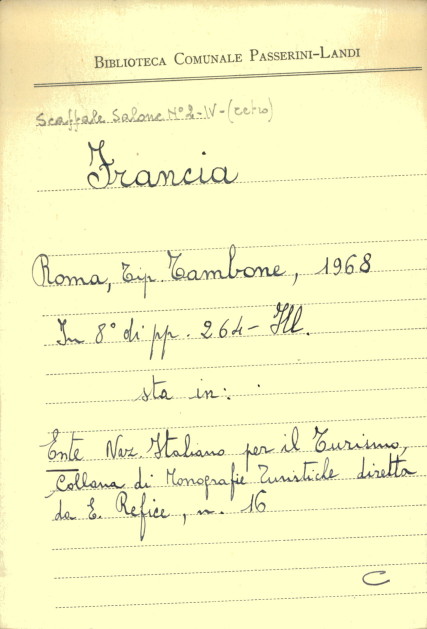 BIBLIOTECA COMUNALE PASSERINI-LANDI
Scaffale Salone N° 2-IV-(retro)
Francia
Roma, Tip. Tambone, 1968
In 8° di pp. 264- Ill.
sta in:
Ente Naz. Italiano per il Turismo,
Collana di Monografie Turistiche diretta
da E. Refice, n. 16
C